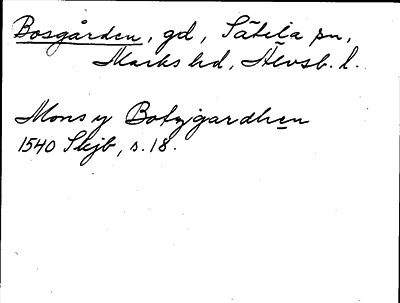 Bosgården, gd, Sätila sn,
Marks hd, Älvsb. l.
Mons y Botzgardhen
1540 Skjb, s. 18.